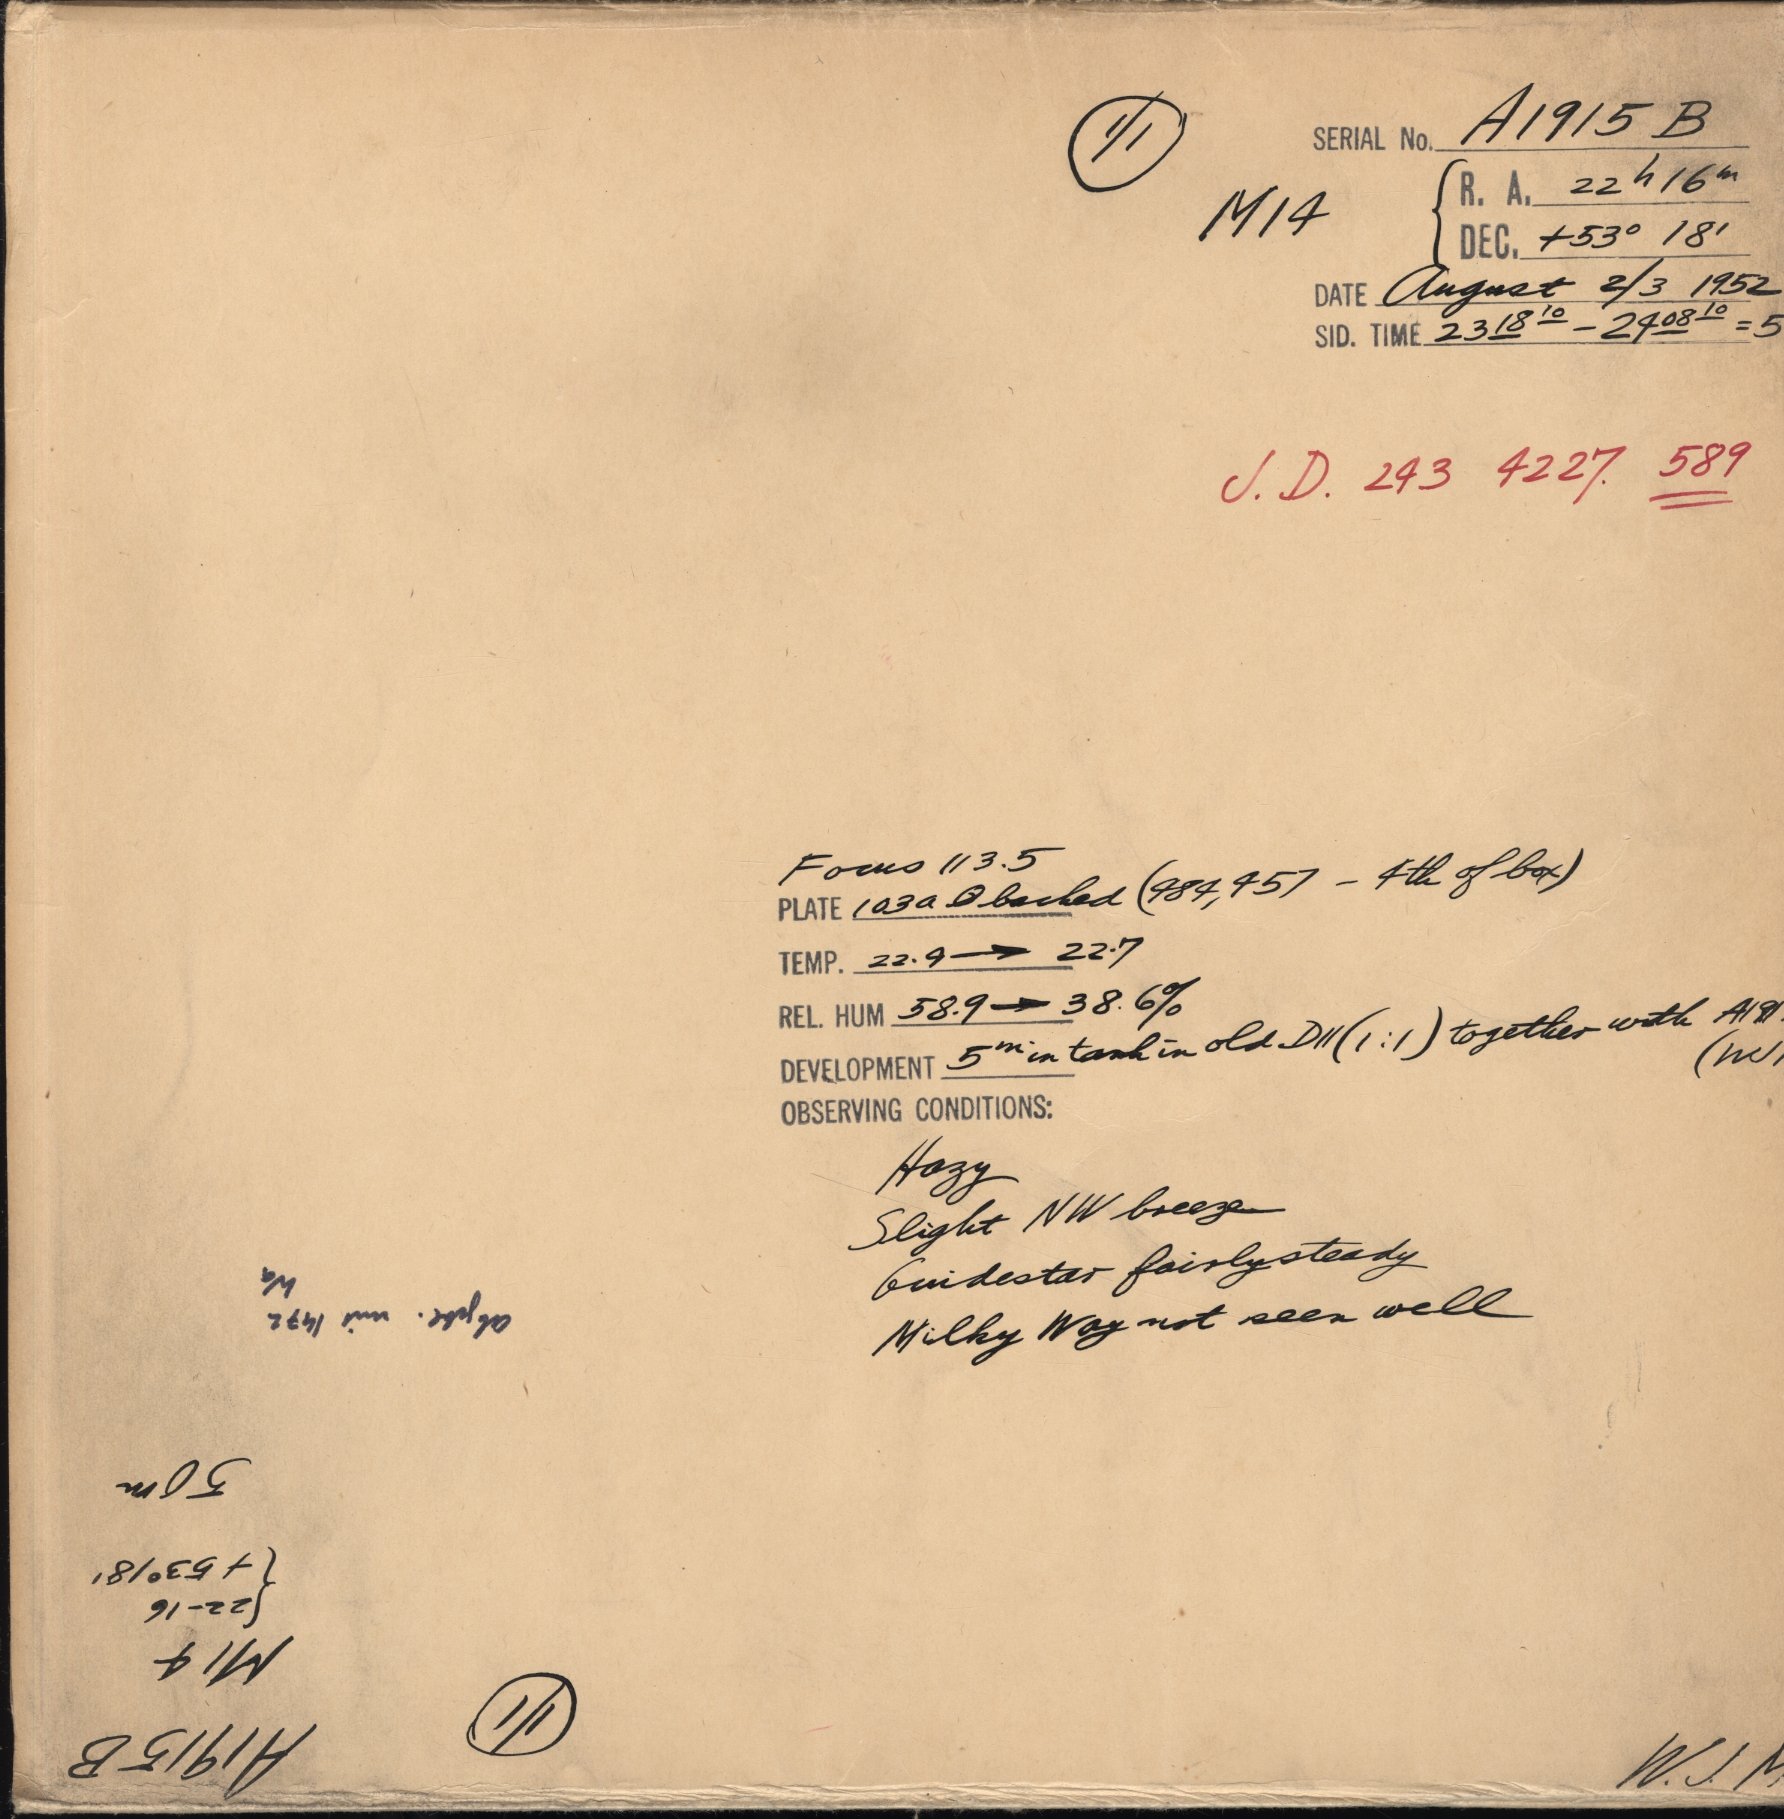 1/1
SERIAL No. A1915 B
M14
R. A. 22h 16m
DEC. +53° 18'
DATE August 2/3 1952
SID. TIME 23 18 10 - 24 08 10 = 5
J. D. 243 4227. 589
Focus 113.5
PLATE 103a O backed (484,457 - 4th of box)
TEMP. 22.9 → 22.7
REL. HUM 58.9 → 38.6%
DEVELOPMENT 5m in tank in old D11 (1:1) together with A191
OBSERVING CONDITIONS:
Hazy
Slight NW breeze
Guidestar fairly steady
Milky Way not seen well
W. J. M
A1915B
M14
22-16
+53°18'
50m
mit 1472
1/1